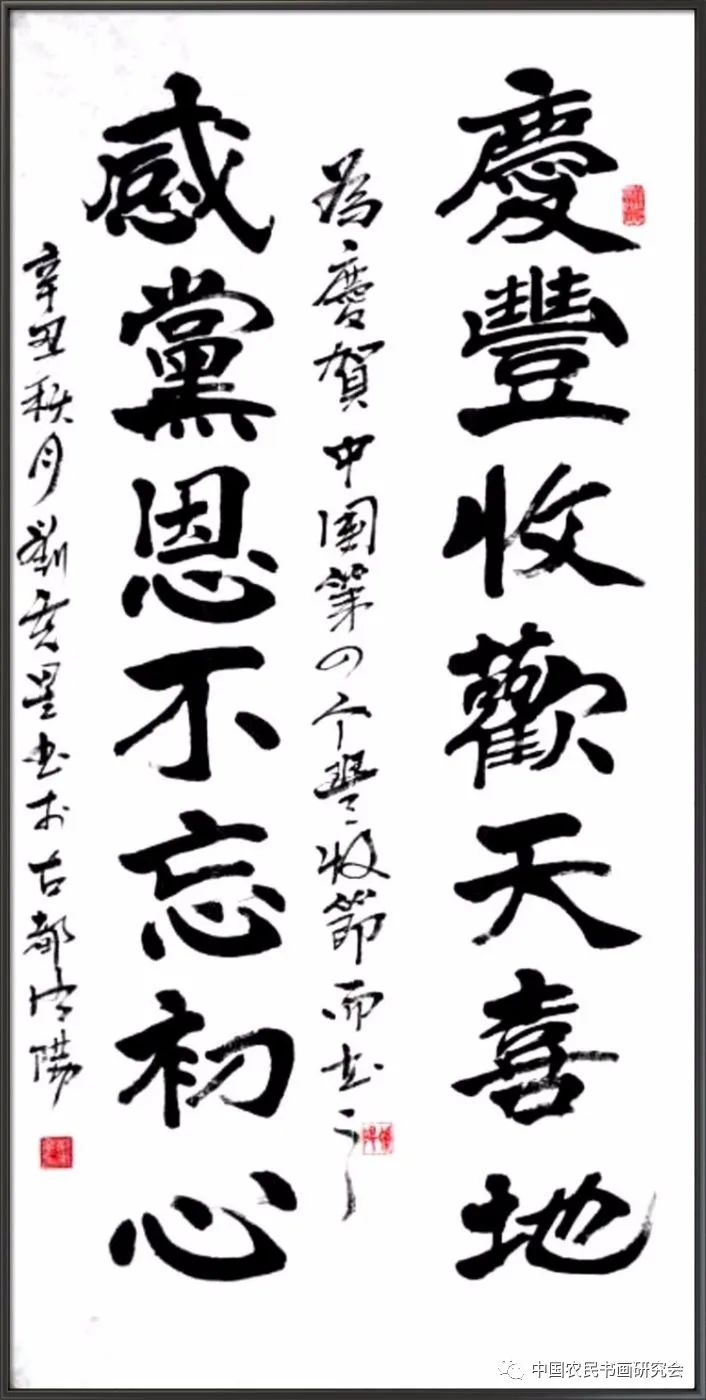 慶豐收歡天喜地
為慶賀中國第四个豐收節而书之
感黨恩不忘初心
辛丑秋月劉星书於古都洛陽
中国农民书画研究会